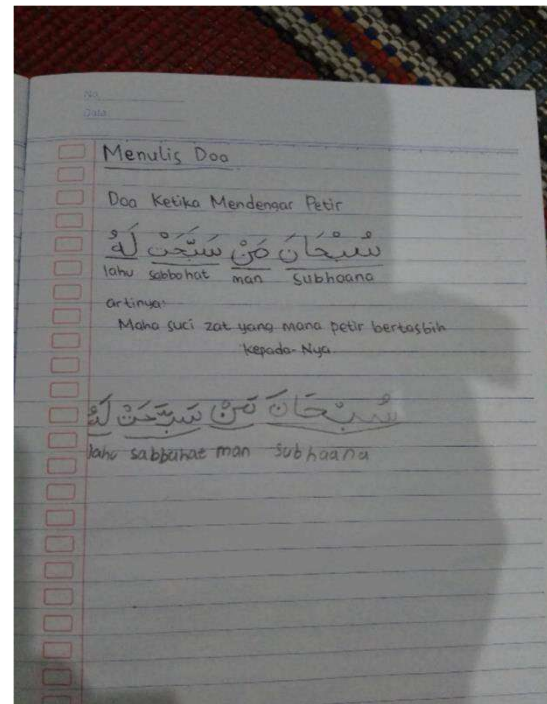 No.
Date
Menulis Doa
Doa Ketika Mendengar Petir
سُبْحَانَ مَنْ سَبَّحَتْ لَهُ
lahu sabbahat man subhaana
artinya:
Maha suci zat yang mana petir bertasbih
kepada-Nya
سُبْحَانَ مَنْ سَبَّحَتْ لَهُ
lahu sabbahat man subhaana